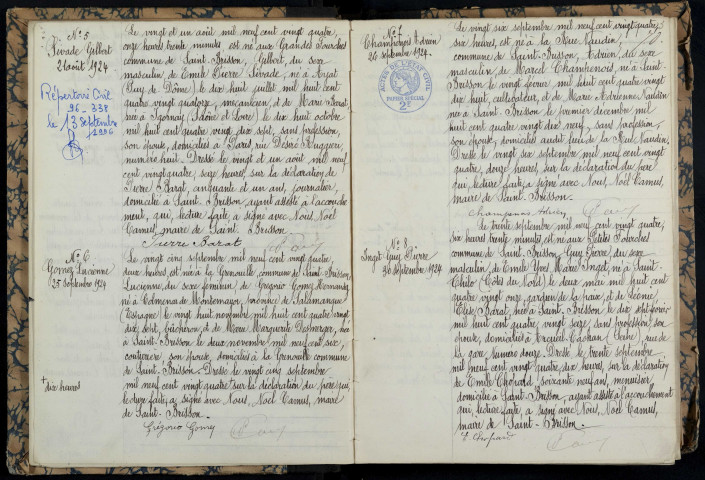 N° 5
Sivade Gilbert
21 août 1924
Répertoire Civil
96 - 338
le 13 septembre
1996
Le vingt et un août mil neuf cent vingt quatre
onze heures trente minutes est né aux Grandes Fourches
commune de Saint-Brisson, Gilbert, du sexe
masculin de Emile Pierre Sivade, né à
(Puy de Dôme) le dix huit juillet mil huit cent
quatre vingt quatorze, mécanicien, et de Marie Barat,
née à Igornay (Saône et Loire) le dix huit octobre
mil huit cent quatre vingt dix sept, sans profession,
son épouse, domiciliés à Paris, rue Désiré Ruggieri,
numéro huit. Dressé le vingt et un août mil neuf
cent vingt quatre, seize heures, sur la déclaration de
Pierre Barat, cinquante et un ans, journalier,
domicilié à Saint-Brisson, ayant assisté à l'accouche
ment, qui, lecture faite, a signé avec Nous, Noël
Camus, maire de Saint-Brisson.
Pierre Barat
N° 6
Gomez Lucienne
25 Septembre 1924
+ dix heures
Le vingt cinq septembre mil neuf cent vingt quatre,
deux heures, est née à la Grenouille, commune de Saint-Brisson,
Lucienne, du sexe féminin de Grégorio Gomez
né à Colmena de Montemayor, province de Salamanque
(Espagne) le vingt huit novembre mil huit cent quatre vingt
dix sept, bûcheron, et de Marie Marguerite née
à Saint-Brisson le deux novembre mil neuf cent six,
couturière, son épouse, domiciliés à la Grenouille commune
de Saint-Brisson. Dressé le vingt cinq septembre
mil neuf cent vingt quatre + sur la déclaration du père qui,
lecture faite, a signé avec Nous, Noël Camus, maire
de Saint-Brisson.
Grégorio Gomez
N° 7
Champenois Adrien
26 septembre 1924
ACTES DE L'ETAT CIVIL
PAPIER SPECIAL
2F
Le vingt six septembre mil neuf cent vingt quatre,
six heures, est né à la Rue Naudin,
commune de Saint-Brisson, Adrien, du sexe
masculin, de Marcel Champenois, né à Saint-
Brisson le vingt février mil huit cent quatre vingt
dix huit, cultivateur, et de Marie Adrienne Naudin
née à Saint-Brisson le premier décembre mil
huit cent quatre vingt dix neuf, sans profession,
son épouse, domiciliés audit lieu de la Rue Naudin.
Dressé le vingt six septembre mil neuf cent vingt
quatre, douze heures, sur la déclaration du père
qui, lecture faite, a signé avec Nous, Noël Camus,
maire de Saint-Brisson.
N° 8
Guy Pierre
30 septembre 1924
Le trente septembre mil neuf cent vingt quatre,
six heures trente minutes, est né aux Petites Fourches
commune de Saint-Brisson, Guy Pierre, du sexe
masculin, de Emile Yves Marie né à Saint-
(Côtes du Nord) le deux mai mil huit cent
quatre vingt onze, gardien de la paix, et de Léonie
Elise Barat, née à Saint-Brisson le dix sept
mil huit cent quatre vingt seize, sans profession, son
épouse, domiciliés à Arcueil-Cachan (Seine), rue de
la gare, numéro douze. Dressé le trente septembre
mil neuf cent vingt quatre, dix heures, sur la déclaration
de Emile Chopard, soixante neuf ans, menuisier,
domicilié à Saint-Brisson, ayant assisté à l'accouchement
qui, lecture faite, a signé avec Nous, Noël Camus,
maire de Saint-Brisson.
E. Chopard